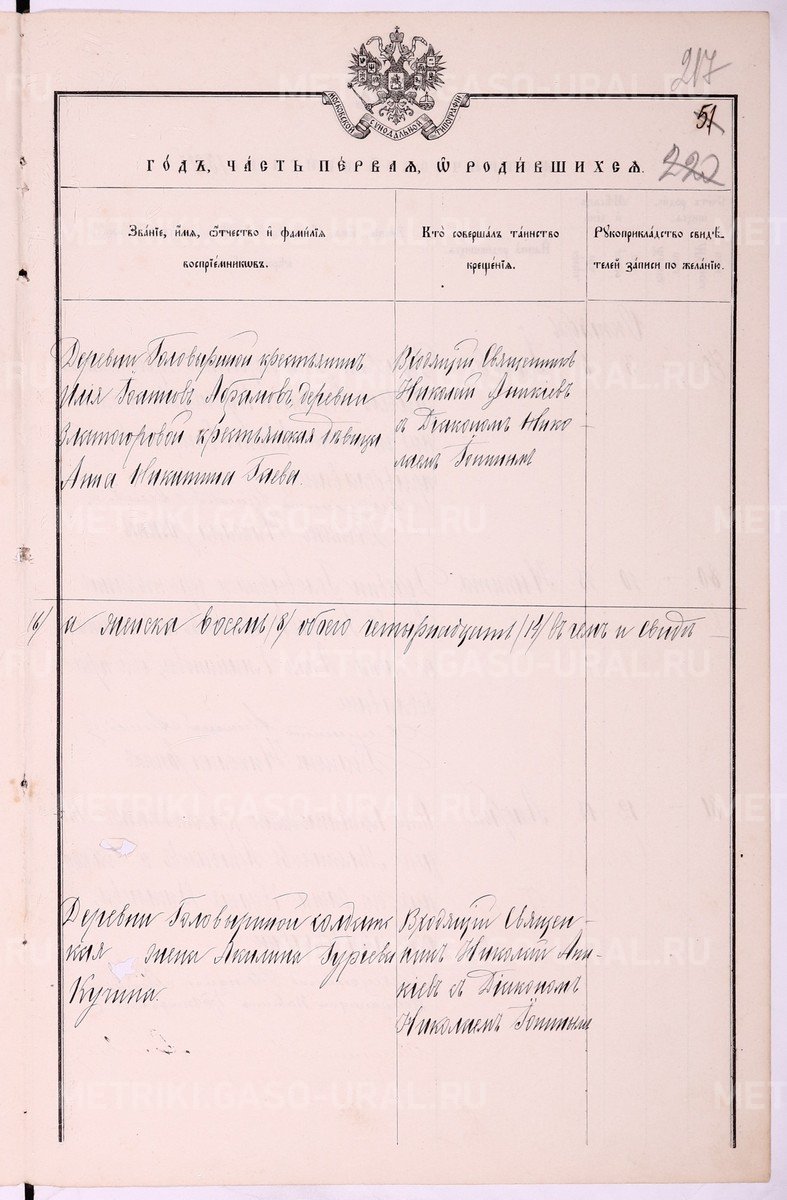 217
51
220
МОСКОВСКОЙ СѴНОДАЛЬНОЙ ТИПОГРАФІИ
ГО́ДЪ, ЧА́СТЬ ПЕ́РВАЯ, Ѡ҆ РОДИ́ВШИХСЯ.
Зва́нїе, и҆́мѧ, ѻ҆́тчество и҆ фами́лїѧ
воспрїе́мникѡвъ.
Кто̀ соверша́лъ та́инство
креще́нїѧ.
Рꙋкоприкла́дство свидѣ́-
телей за́писи по жела́нїю.
Деревни Головыриной крестьянинъ
Илія Іоанновъ Абрамовъ, деревни
Златогоровой крестьянская дѣвица
Анна Никитина Гаева.
Входящій Священникъ
Николай Аникіевъ
съ Діакономъ Нико-
лаемъ
а женска восемь /8/ обоего четырнадцать /14/ въ чемъ и свидѣ
Деревни Головыриной солдат-
ская жена Акилина Гуріева
Кучина.
Входящій Священ-
никъ Николай Ани-
кіевъ съ Діакономъ
Николаемъ
METRIKI.GASO-URAL.RU